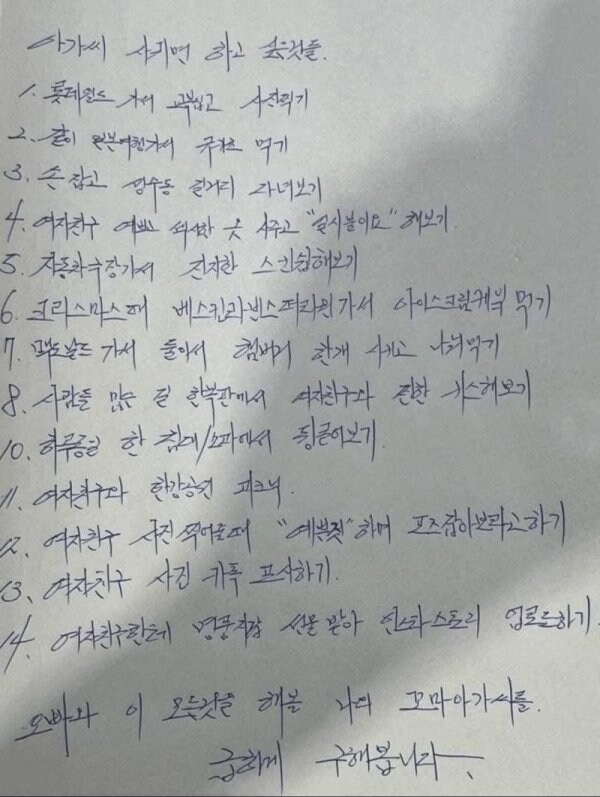 아가씨 사귀면 하고 싶은것들.
1. 롯데월드 가서 교복입고 사진찍기
2. 같이 일본여행가서 규카츠 먹기
3. 손 잡고 성수동 길거리 다녀보기
4. 여자친구 예쁘고 섹시한 옷 사주고 "일시불이요" 해보기
5. 자동차극장가서 진지한 스킨쉽해보기
6. 크리스마스때 베스킨라빈스파라원가서 아이스크림케익 먹기
7. 맥도날드 가서 둘이서 햄버거 한개 시키고 나눠먹기
8. 사람들 많은 길 한복판에서 여자친구와 진한 키스해보기
10. 하루종일 한 침대/소파에서 뒹굴어보기
11. 여자친구와 한강공원 피크닉.
12. 여자친구 사진 찍어줄때 "예쁜짓"하며 포즈잡아보라고하기
13. 여자친구 사진 카톡 프사하기.
14. 여자친구한테 명품지갑 선물 받아 인스타스토리 업로드하기.
오빠와 이 모든것을 해볼 나의 꼬마아가씨를.
급하게 구해봅니다~.